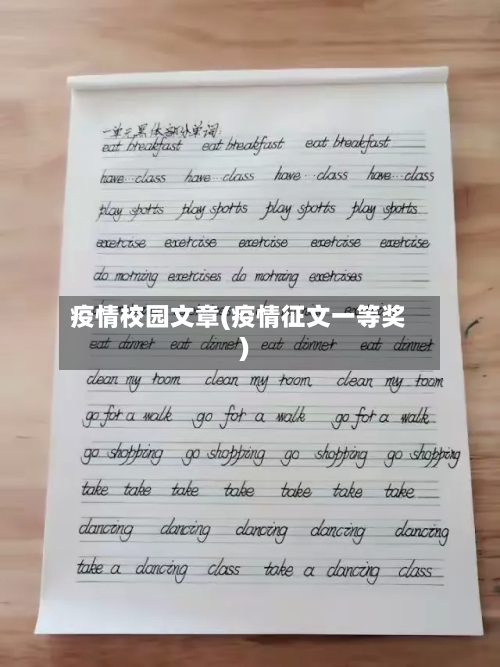 一单元黑体部分单词:
eat breakfast eat breakfast eat breakfast
have...class have...class have...class have...class
play sports play sports play sports play sports
exercise exercise exercise exercise exercise
do morning exercises do morning exercises
疫情校园文章(疫情征文一等奖
)
eat dinner eat dinner eat dinner eat dinner
clean my room clean my room clean my room
go for a walk go for a walk go for a walk
go shopping go shopping go shopping go shopping
take take take take take take take
dancing dancing dancing dancing dancing
take a dancing class take a dancing class